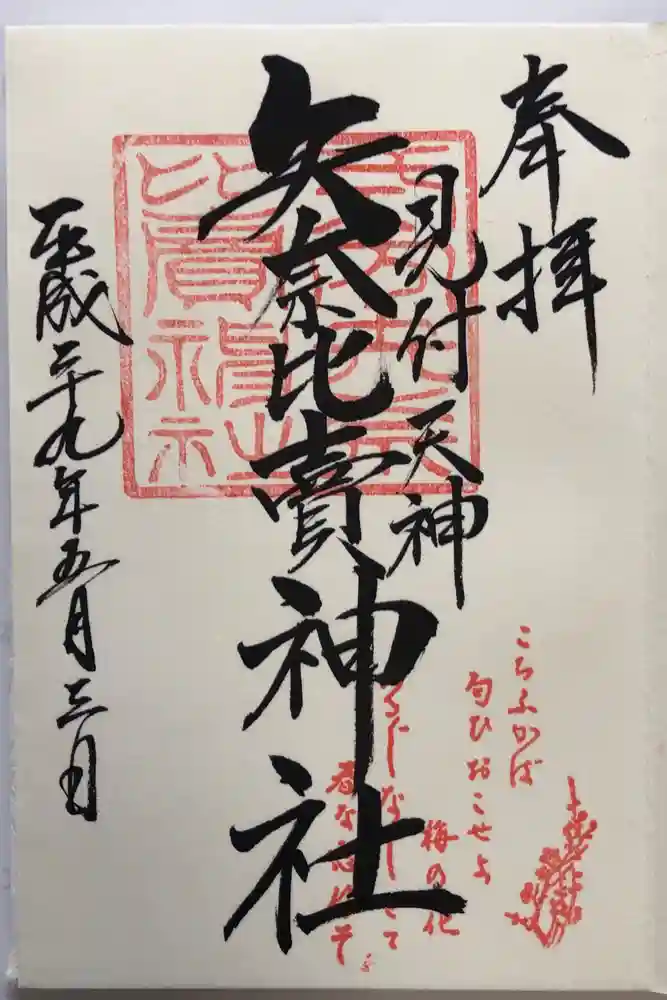 奉拝
見付天神
矢奈比賣神社
平成二十九年五月三日
こちふかば
匂ひおこせよ
梅の花
るじなしとて
春な忘れそ